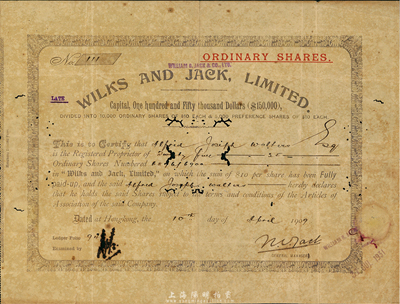 No. 111
ORDINARY SHARES.
WILLIAM S. JACK & CO., LTD.
LATE
WILKS AND JACK, LIMITED.
Capital, One hundred and Fifty thousand Dollars ($150,000),
DIVIDED INTO 10,000 ORDINARY SHARES OF $10 EACH & 5,000 PREFERENCE SHARES OF $10 EACH
This is to Certify that Alfred Joseph Esq
is the Registered Proprietor of Twenty five 25
Ordinary Shares Numbered
in "Wilks and Jack, Limited," on which the sum of $10 per share has been Fully
paid-up, and the said Alfred Joseph hereby declares,
that he holds the said Shares the terms and conditions of the Articles of
Association of the said Company.
Dated at Hongkong, the 10th day of April 1909
Ledger Folio 92
Examined by
W S Jack
GENERAL MANAGER
上海陽明拍賣